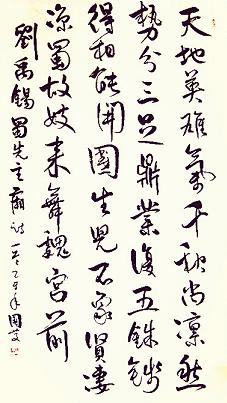 天地英雄氣千秋尚凜然
勢分三足鼎業復五銖錢
得相能開國生兒不象賢淒
涼蜀故妓來舞魏宮前
劉禹錫蜀先主廟詩 年國